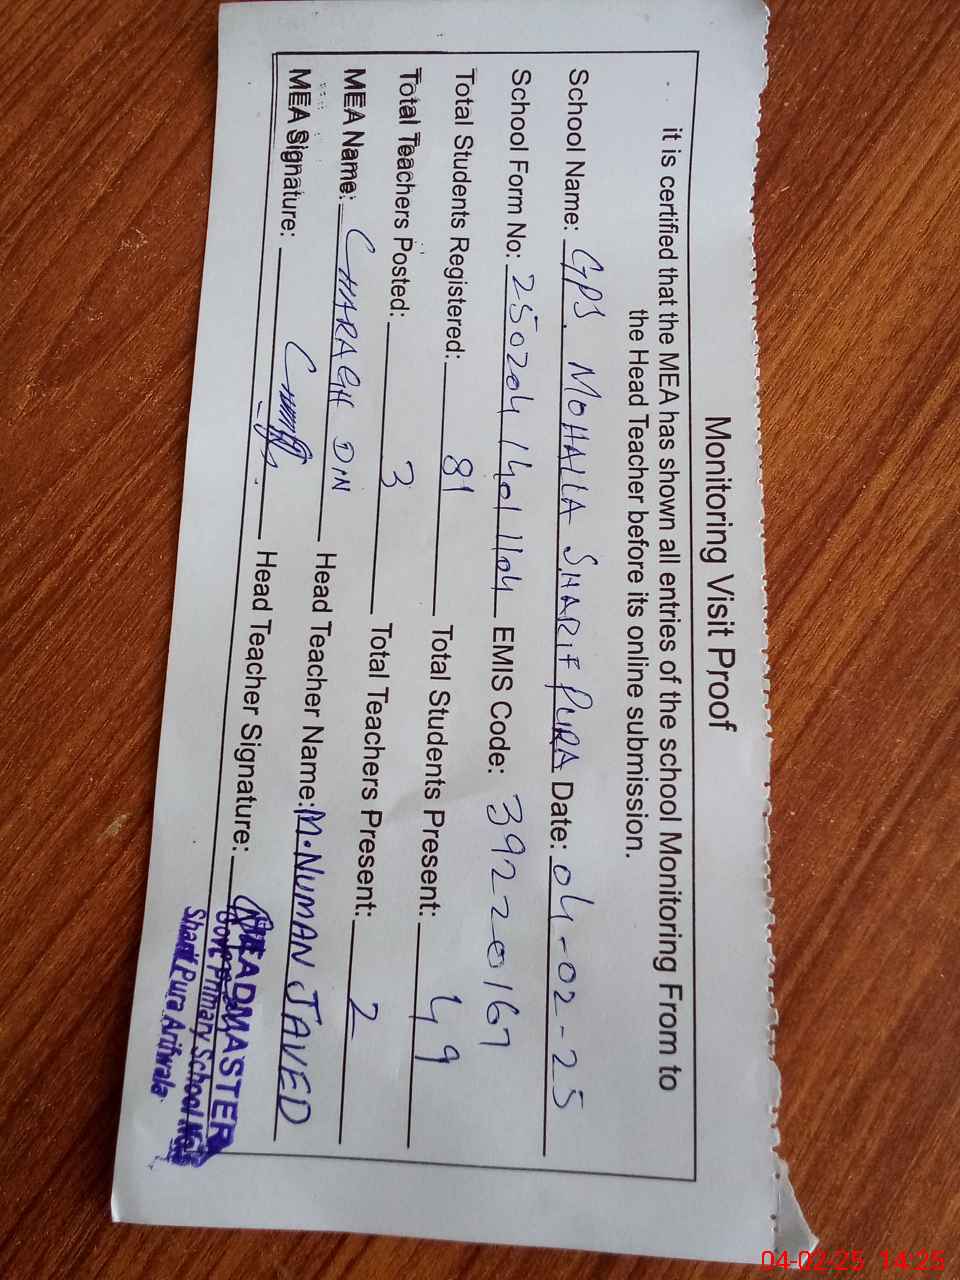 Monitoring Visit Proof
it is certified that the MEA has shown all entries of the school Monitoring From to
the Head Teacher before its online submission.
School Name: GPS MOHALLA SHARIF PURA Date: 04-02-25
School Form No: 250204 1401 1104 EMIS Code: 39220167
Total Students Registered: 81 Total Students Present: 49
Total Teachers Posted: 3 Total Teachers Present: 2
MEA Name: CHARAGH DIN Head Teacher Name: M.NUMAN JAVED
MEA Signature: Head Teacher Signature:
HEADMASTER
Govt. Primary School
Sharif Pura Arifwala
04-02-25 14:25